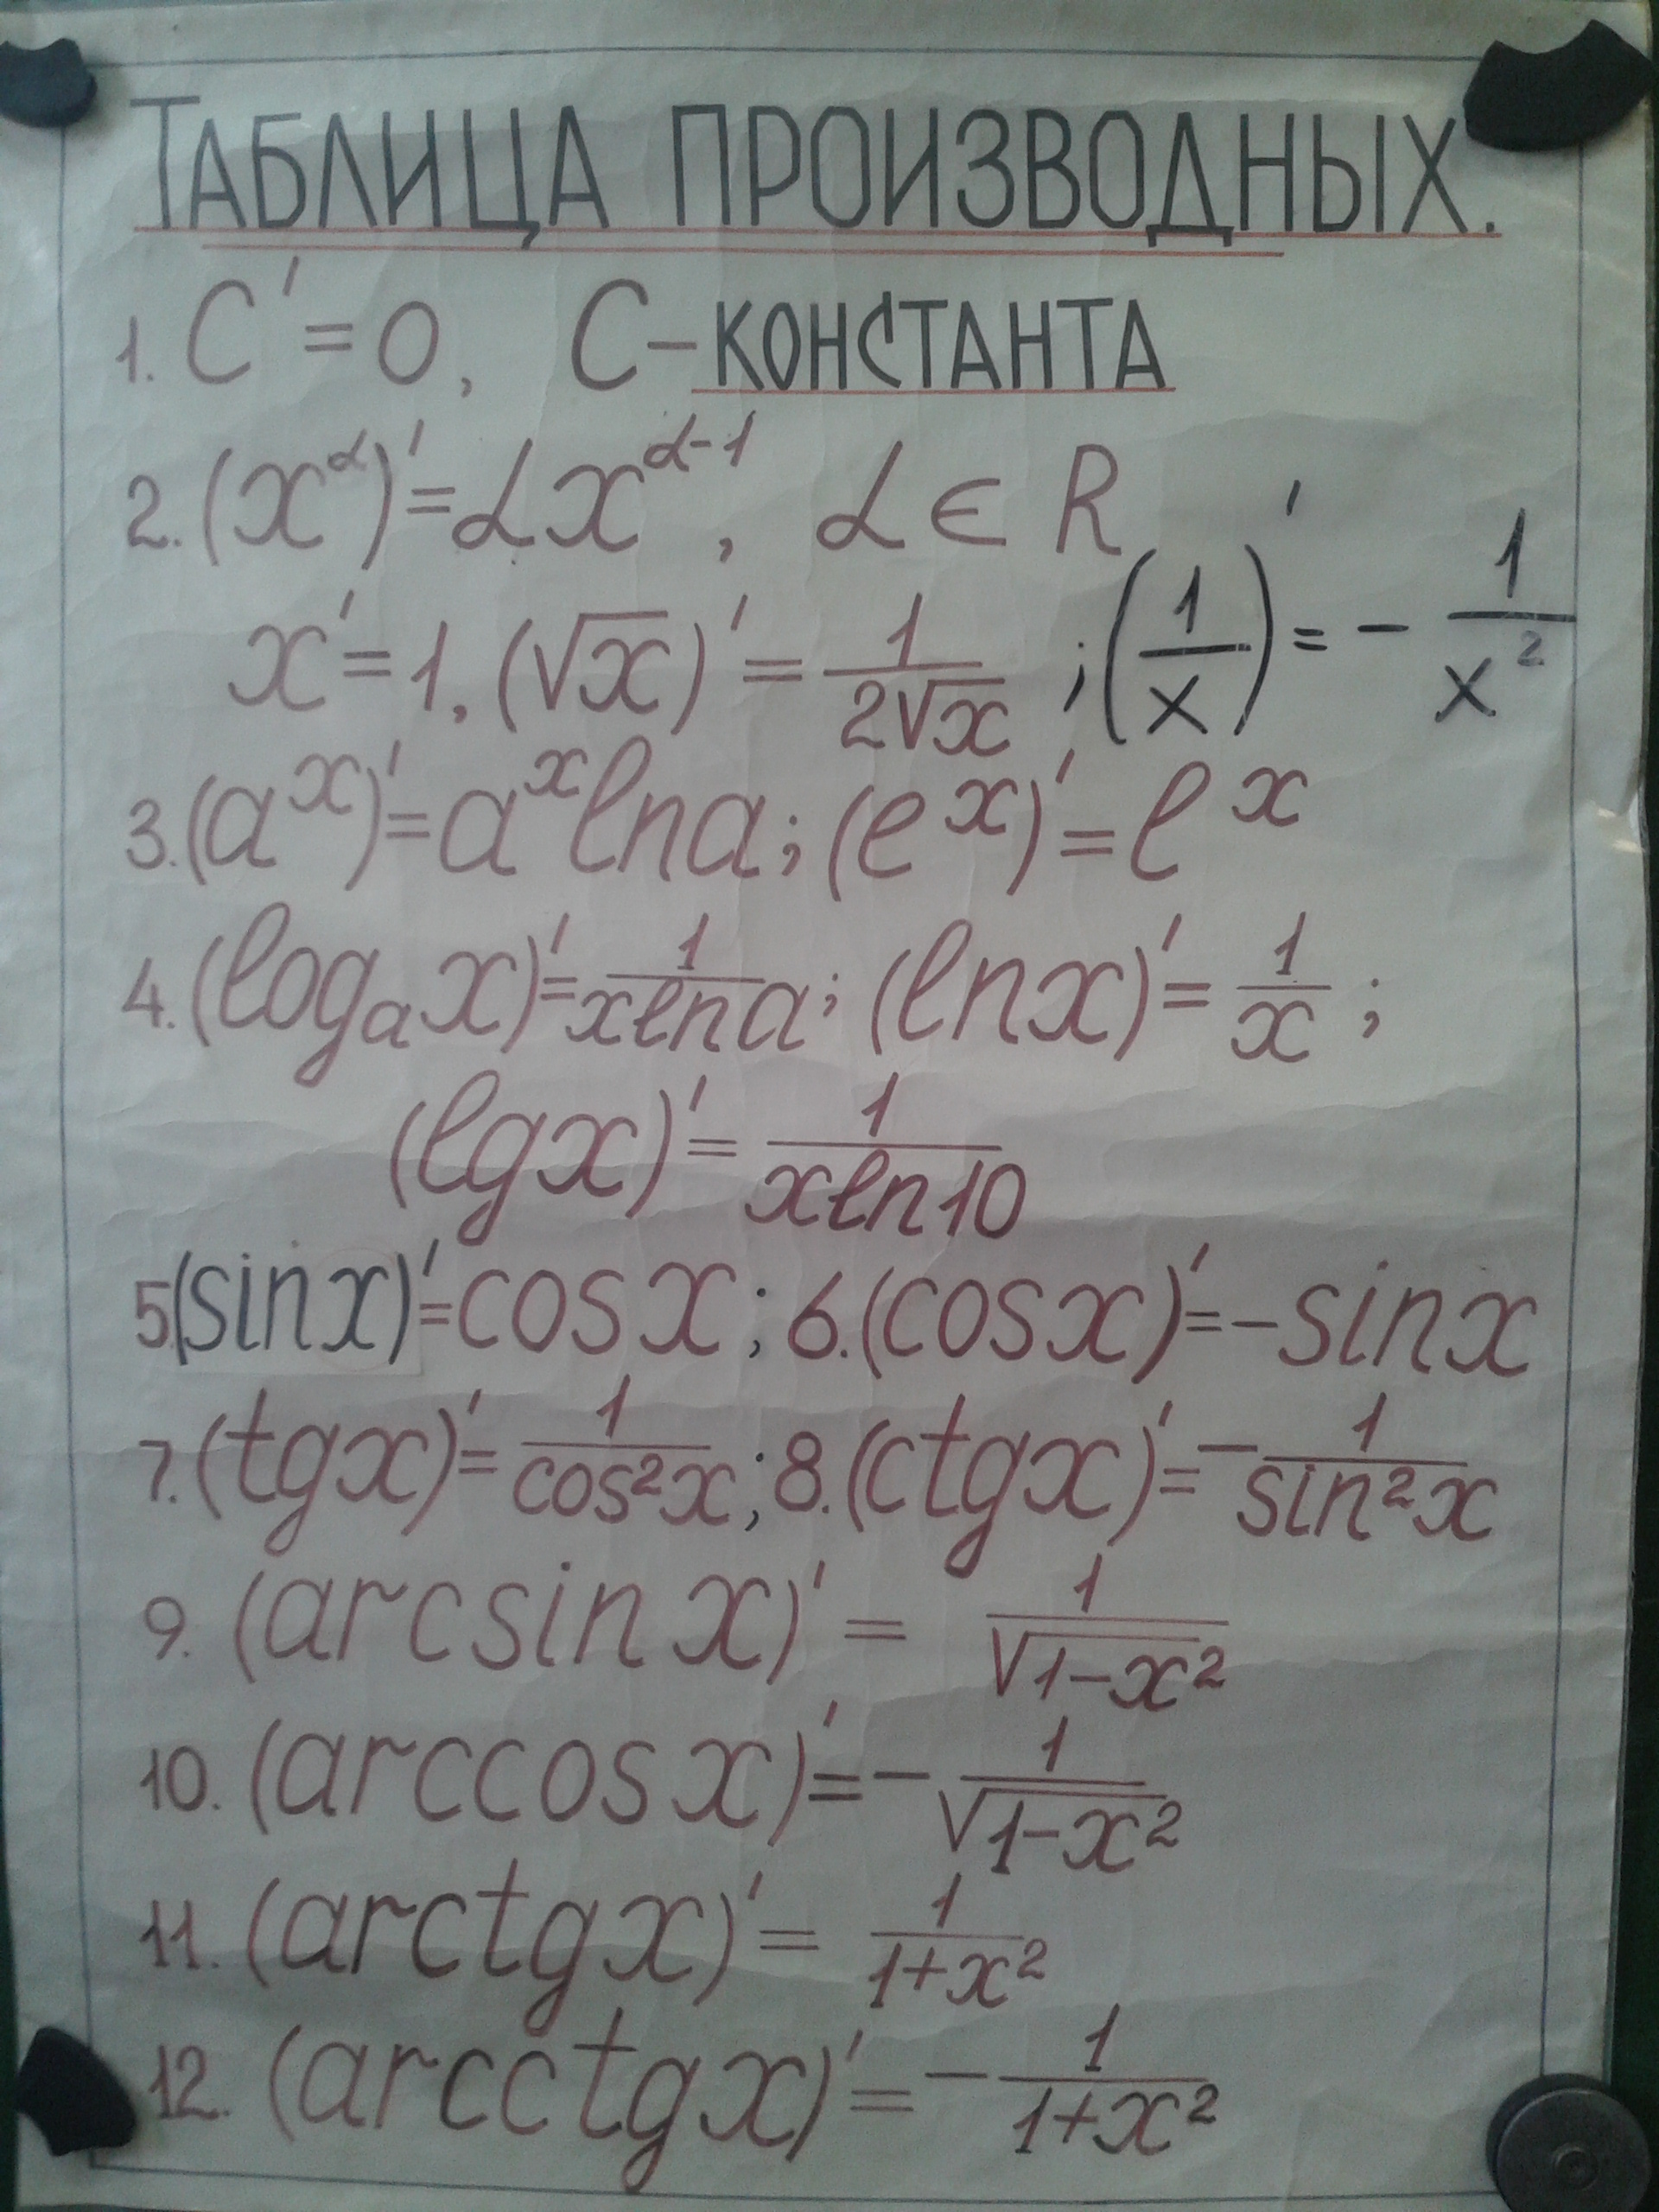 ТАБЛИЦА ПРОИЗВОДНЫХ.
1. C' = 0, C – КОНСТАНТА
2. (x^α)' = αx^(α-1), α ∈ R
x' = 1, (√x)' = 1/(2√x) ; (1/x)' = - 1/x²
3. (a^x)' = a^x ln a; (e^x)' = e^x
4. (log_a x)' = 1/(x ln a); (ln x)' = 1/x ;
(lg x)' = 1/(x ln 10)
5. (sin x)' = cos x; 6. (cos x)' = - sin x
7. (tg x)' = 1/cos²x; 8. (ctg x)' = - 1/sin²x
9. (arcsin x)' = 1/√(1-x²)
10. (arccos x)' = - 1/√(1-x²)
11. (arctg x)' = 1/(1+x²)
12. (arcctg x)' = - 1/(1+x²)